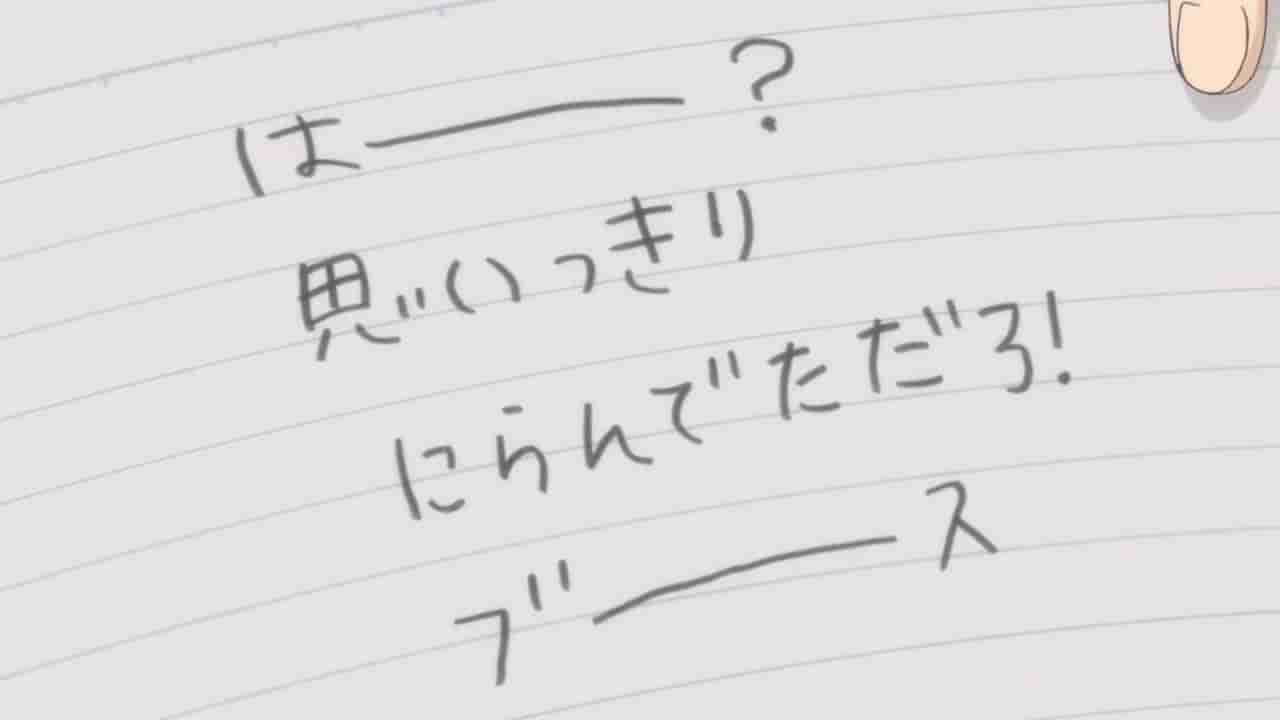 はー?
思いっきり
にらんでただろ!
ブース